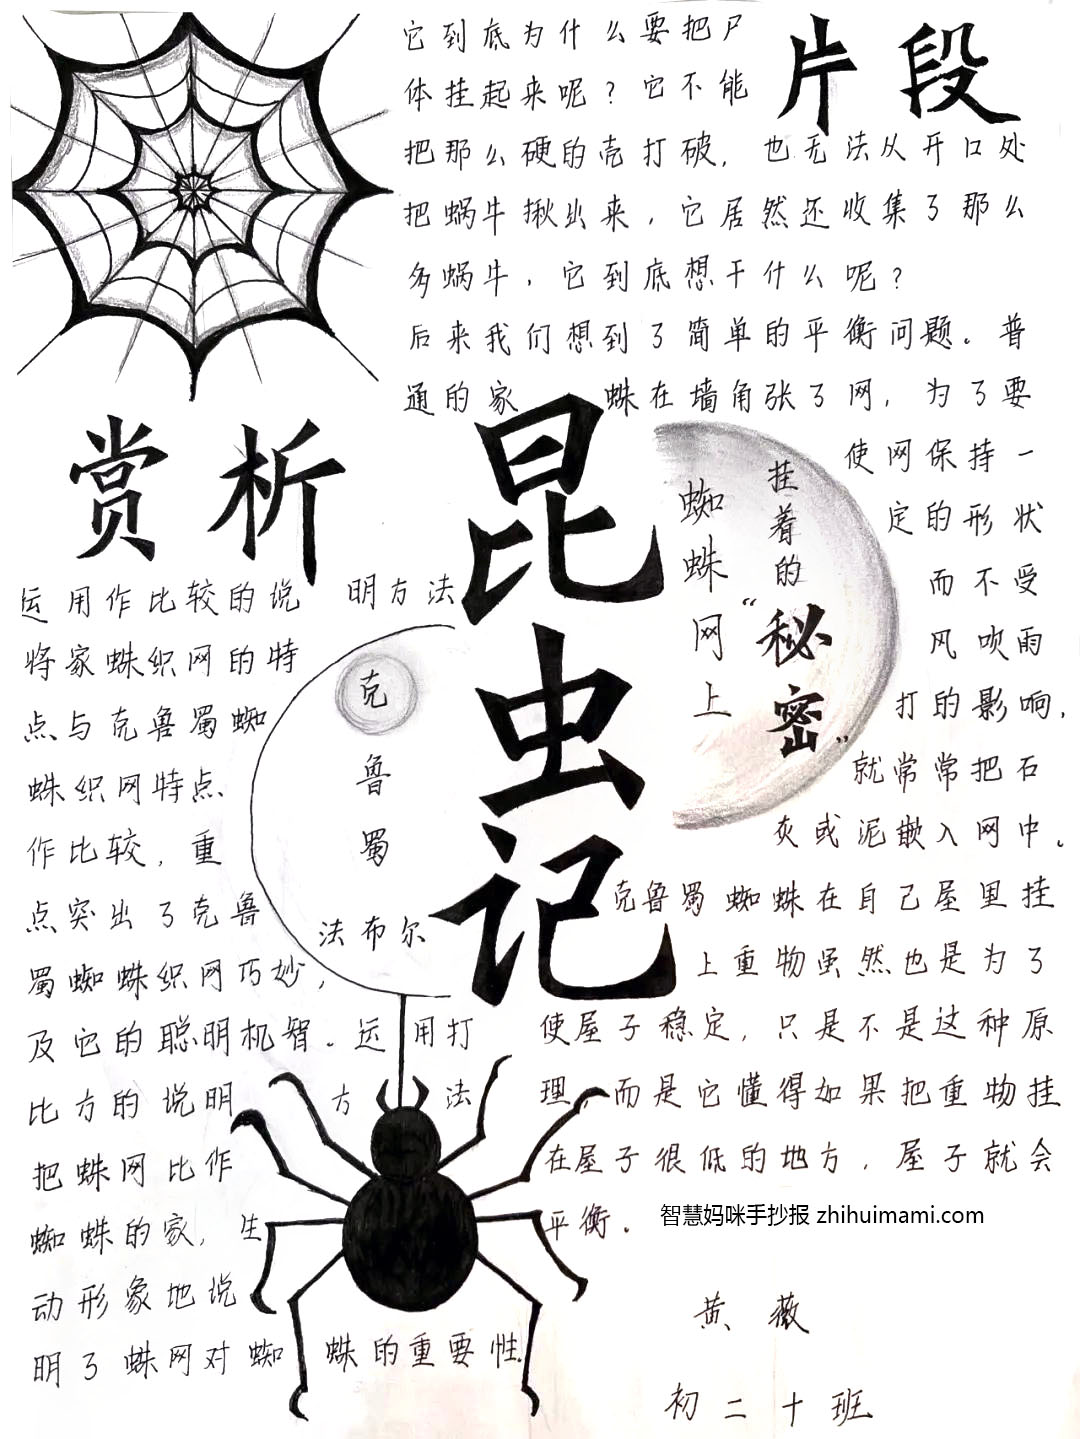 片段
它到底为什么要把尸
体挂起来呢？它不能
把那么硬的壳打破，也无法从开口处
把蜗牛揪出来，它居然还收集了那么
多蜗牛，它到底想干什么呢？
后来我们想到了简单的平衡问题。普
通的家蛛在墙角张了网，为了要
使网保持一
定的形状
而不受
风吹雨
打的影响，
就常常把石
灰或泥嵌入网中。
克鲁蜀蜘蛛在自己屋里挂
上重物虽然也是为了
使屋子稳定，只是不是这种原
理，而是它懂得如果把重物挂
在屋子很低的地方，屋子就会
平衡。
蜘蛛网上
挂着的
“秘密”
昆虫记
克鲁蜀
法布尔
赏析
运用作比较的说明方法
将家蛛织网的特
点与克鲁蜀蜘
蛛织网特点
作比较，重
点突出了克鲁
蜀蜘蛛织网巧妙，
及它的聪明机智。运用打
比方的说明方法
把蛛网比作
蜘蛛的家，生
动形象地说
明了蛛网对蜘蛛的重要性
智慧妈咪手抄报 zhihuimami.com
黄薇
初二十班